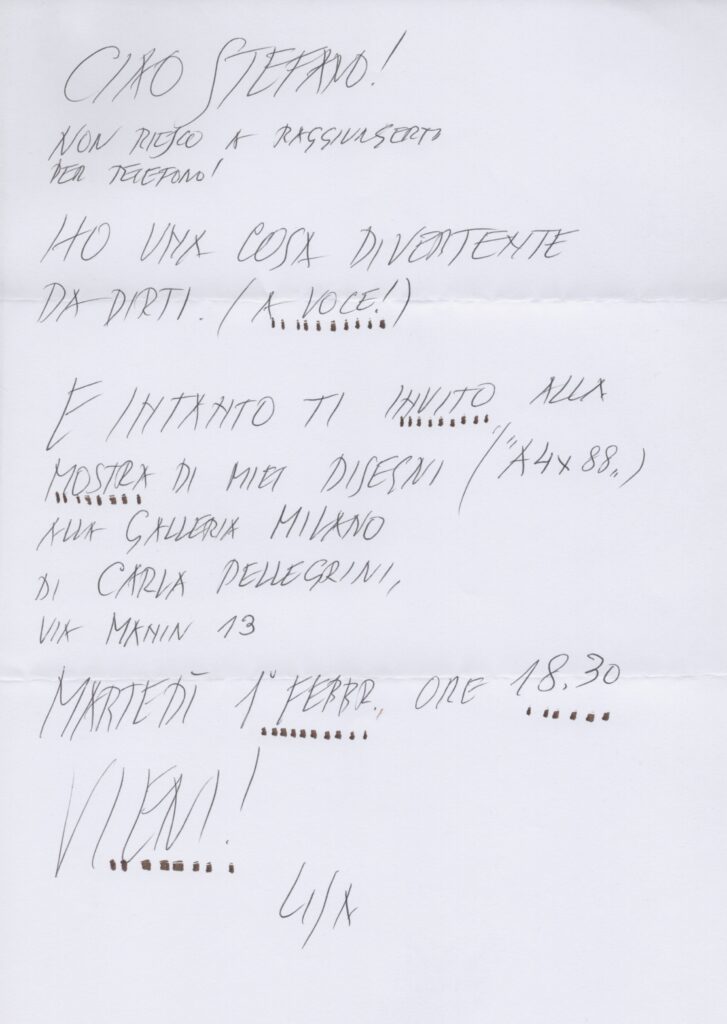 CIAO STEFANO!
NON RIESCO A RAGGIUNGERTI
PER TELEFONO!
HO UNA COSA DIVERTENTE
DA DIRTI. (A VOCE!)
E INTANTO TI INVITO ALLA
MOSTRA DI MIEI DISEGNI ("A4x88")
ALLA GALLERIA MILANO
DI CARLA PELLEGRINI,
VIA MANIN 13
MARTEDÌ 1° FEBBR. ORE 18.30
VIENI!
LISA